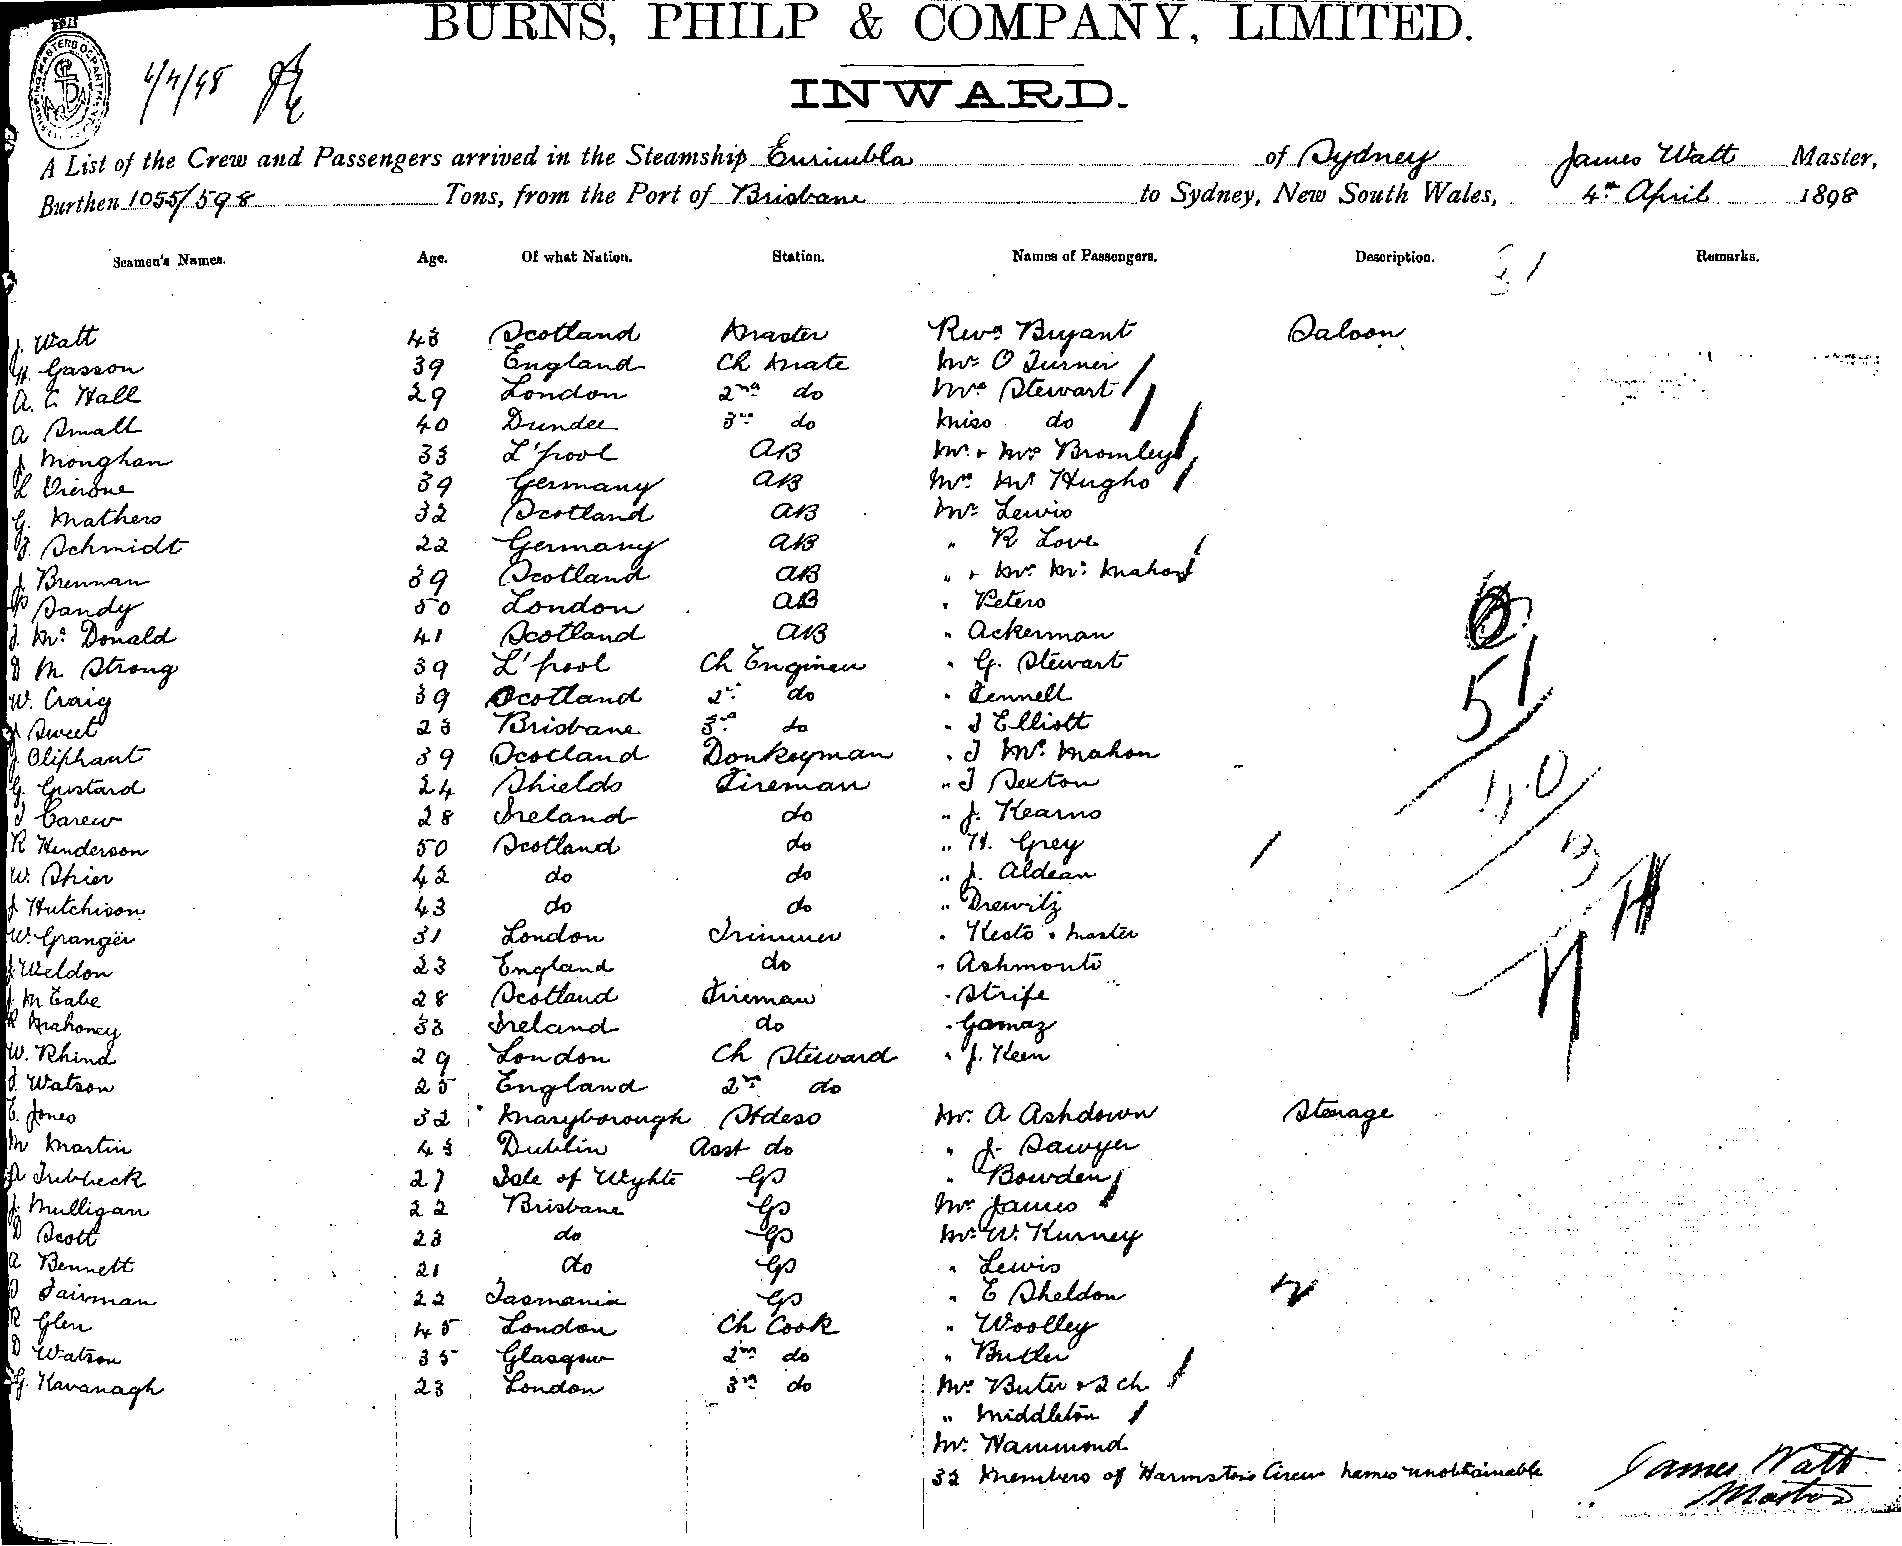 BURNS, PHILP & COMPANY, LIMITED.
INWARD.
4/4/98
A List of the Crew and Passengers arrived in the Steamship Eurimbla of Sydney James Watt Master,
Burthen 1055/598 Tons, from the Port of Brisbane to Sydney, New South Wales, 4th April 1898
Seamen's Names. Age. Of what Nation. Station. Names of Passengers. Description. Remarks.
J. Watt 43 Scotland Master Revd Bryant Saloon
H. Gasson 39 England Ch Mate Mr O Turner
A. C. Hall 29 London 2nd do Mrs Stewart
A Small 40 Dundee 3rd do Miss do
J Monghan 33 L'pool AB Mr + Mrs Bromley
L Vierone 39 Germany AB Mrs Mc Hugho
G. Mathers 32 Scotland AB Mr Lewis
J. Schmidt 22 Germany AB " R Love
J Brennan 39 Scotland AB " + Mrs Mc Mahon
P Sandy 50 London AB " Peters
J. Mc Donald 41 Scotland AB " Ackerman
D M Strong 39 L'pool Ch Engineer " G. Stewart
W. Craig 39 Scotland 2nd do " Fennell
Sweet 23 Brisbane 3rd do " J Elliott
J Oliphant 39 Scotland Donkeyman " J Mc Mahon
G. Gustard 24 Shields Fireman " J Sexton
J Carew 28 Ireland do " J. Kearns
R Henderson 50 Scotland do " H. Grey
W. Shier 42 do do " J. Aldean
J Hutchison 43 do do " Drewitz
W. Granger 31 London Trimmer " Keoto + Master
J Weldon 23 England do " Ashmonte
J. McCabe 28 Scotland Fireman " Strife
R Mahoney 33 Ireland do " Gamaz
W. Rhind 29 London Ch Steward " J. Keen
J. Watson 25 England 2nd do
E. Jones 32 Maryborough Stdess Mr A Ashdown Steerage
M Martin 43 Dublin Asst do " J. Sawyer
A Tubbeck 27 Isle of Wyhte GS " Bowden
J. Mulligan 22 Brisbane GS Mrs James
D Scott 23 do GS Mr W. Kurney
A Bennett 21 do GS " Lewis
D Fairman 22 Tasmania GS " E Sheldon
R Glen 45 London Ch Cook " Woolley
D Watson 35 Glasgow 2nd do " Butler
G. Kavanagh 23 London 3rd do Mrs Buter + 2 ch
" Middleton
Mr Hammond
32 Members of Harmston's Circus names unobtainable
James Watt
Master
51
40